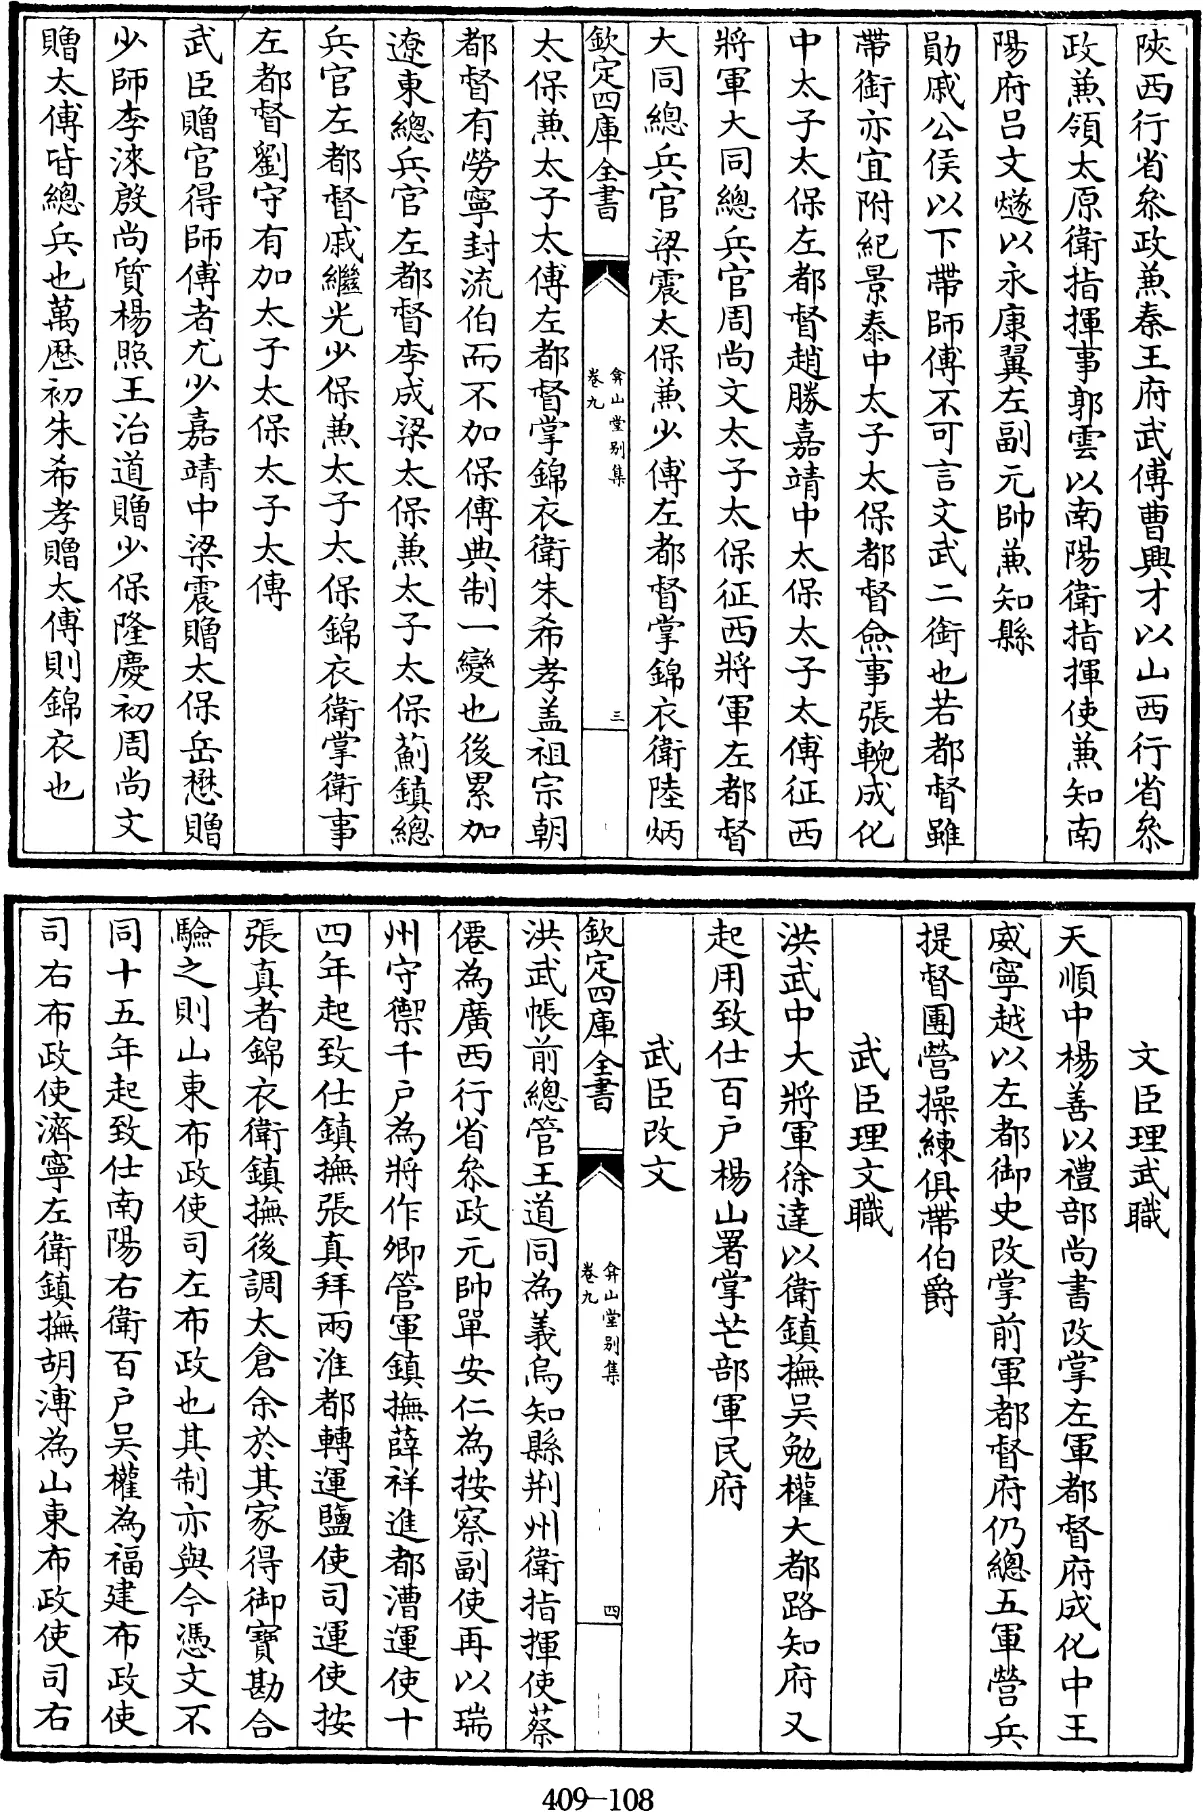 陜西行省叅政兼秦王府武傅曹興才以山西行省叅
政兼領太原衛指揮事郭雲以南陽衛指揮使兼知南
陽府吕文燧以永康翼左副元帥兼知縣
勛戚公侯以下帶師傅不可言文武二銜也若都督雖
帶銜亦宜附紀景泰中太子太保都督僉事張軏成化
中太子太保左都督趙勝嘉靖中太保太子太傅征西
將軍大同總兵官周尚文太子太保征西將軍左都督
大同總兵官梁震太保兼少傅左都督掌錦衣衛陸炳
欽定四庫全書
弇山堂别集
卷九
三
太保兼太子太傅左都督掌錦衣衛朱希孝盖祖宗朝
都督有勞寧封流伯而不加保傅典制一變也後累加
遼東總兵官左都督李成梁太保兼太子太保薊鎮總
兵官左都督戚繼光少保兼太子太保錦衣衛掌衛事
左都督劉守有加太子太保太子太傅
武臣贈官得師傅者尤少嘉靖中梁震贈太保岳懋贈
少師李淶殷尚質楊照王治道贈少保隆慶初周尚文
贈太傅皆總兵也萬厯初朱希孝贈太傅則錦衣也
文臣理武職
天順中楊善以禮部尚書改掌左軍都督府成化中王
威寧越以左都御史改掌前軍都督府仍總五軍營兵
提督團營操練俱帶伯爵
武臣理文職
洪武中大將軍徐達以衛鎮撫吴勉權大都路知府又
起用致仕百户楊山署掌芒部軍民府
武臣改文
欽定四庫全書
弇山堂别集
卷九
四
洪武帳前總管王道同為義烏知縣荆州衛指揮使蔡
僊為廣西行省叅政元帥單安仁為按察副使再以瑞
州守禦千户為將作卿管軍鎮撫薛祥進都漕運使十
四年起致仕鎮撫張真拜兩淮都轉運鹽使司運使按
張真者錦衣衛鎮撫後調太倉余於其家得御寶勘合
驗之則山東布政使司左布政也其制亦與今憑文不
同十五年起致仕南陽右衛百户吴權為福建布政使
司右布政使濟寧左衛鎮撫胡溥為山東布政使司右
409-108